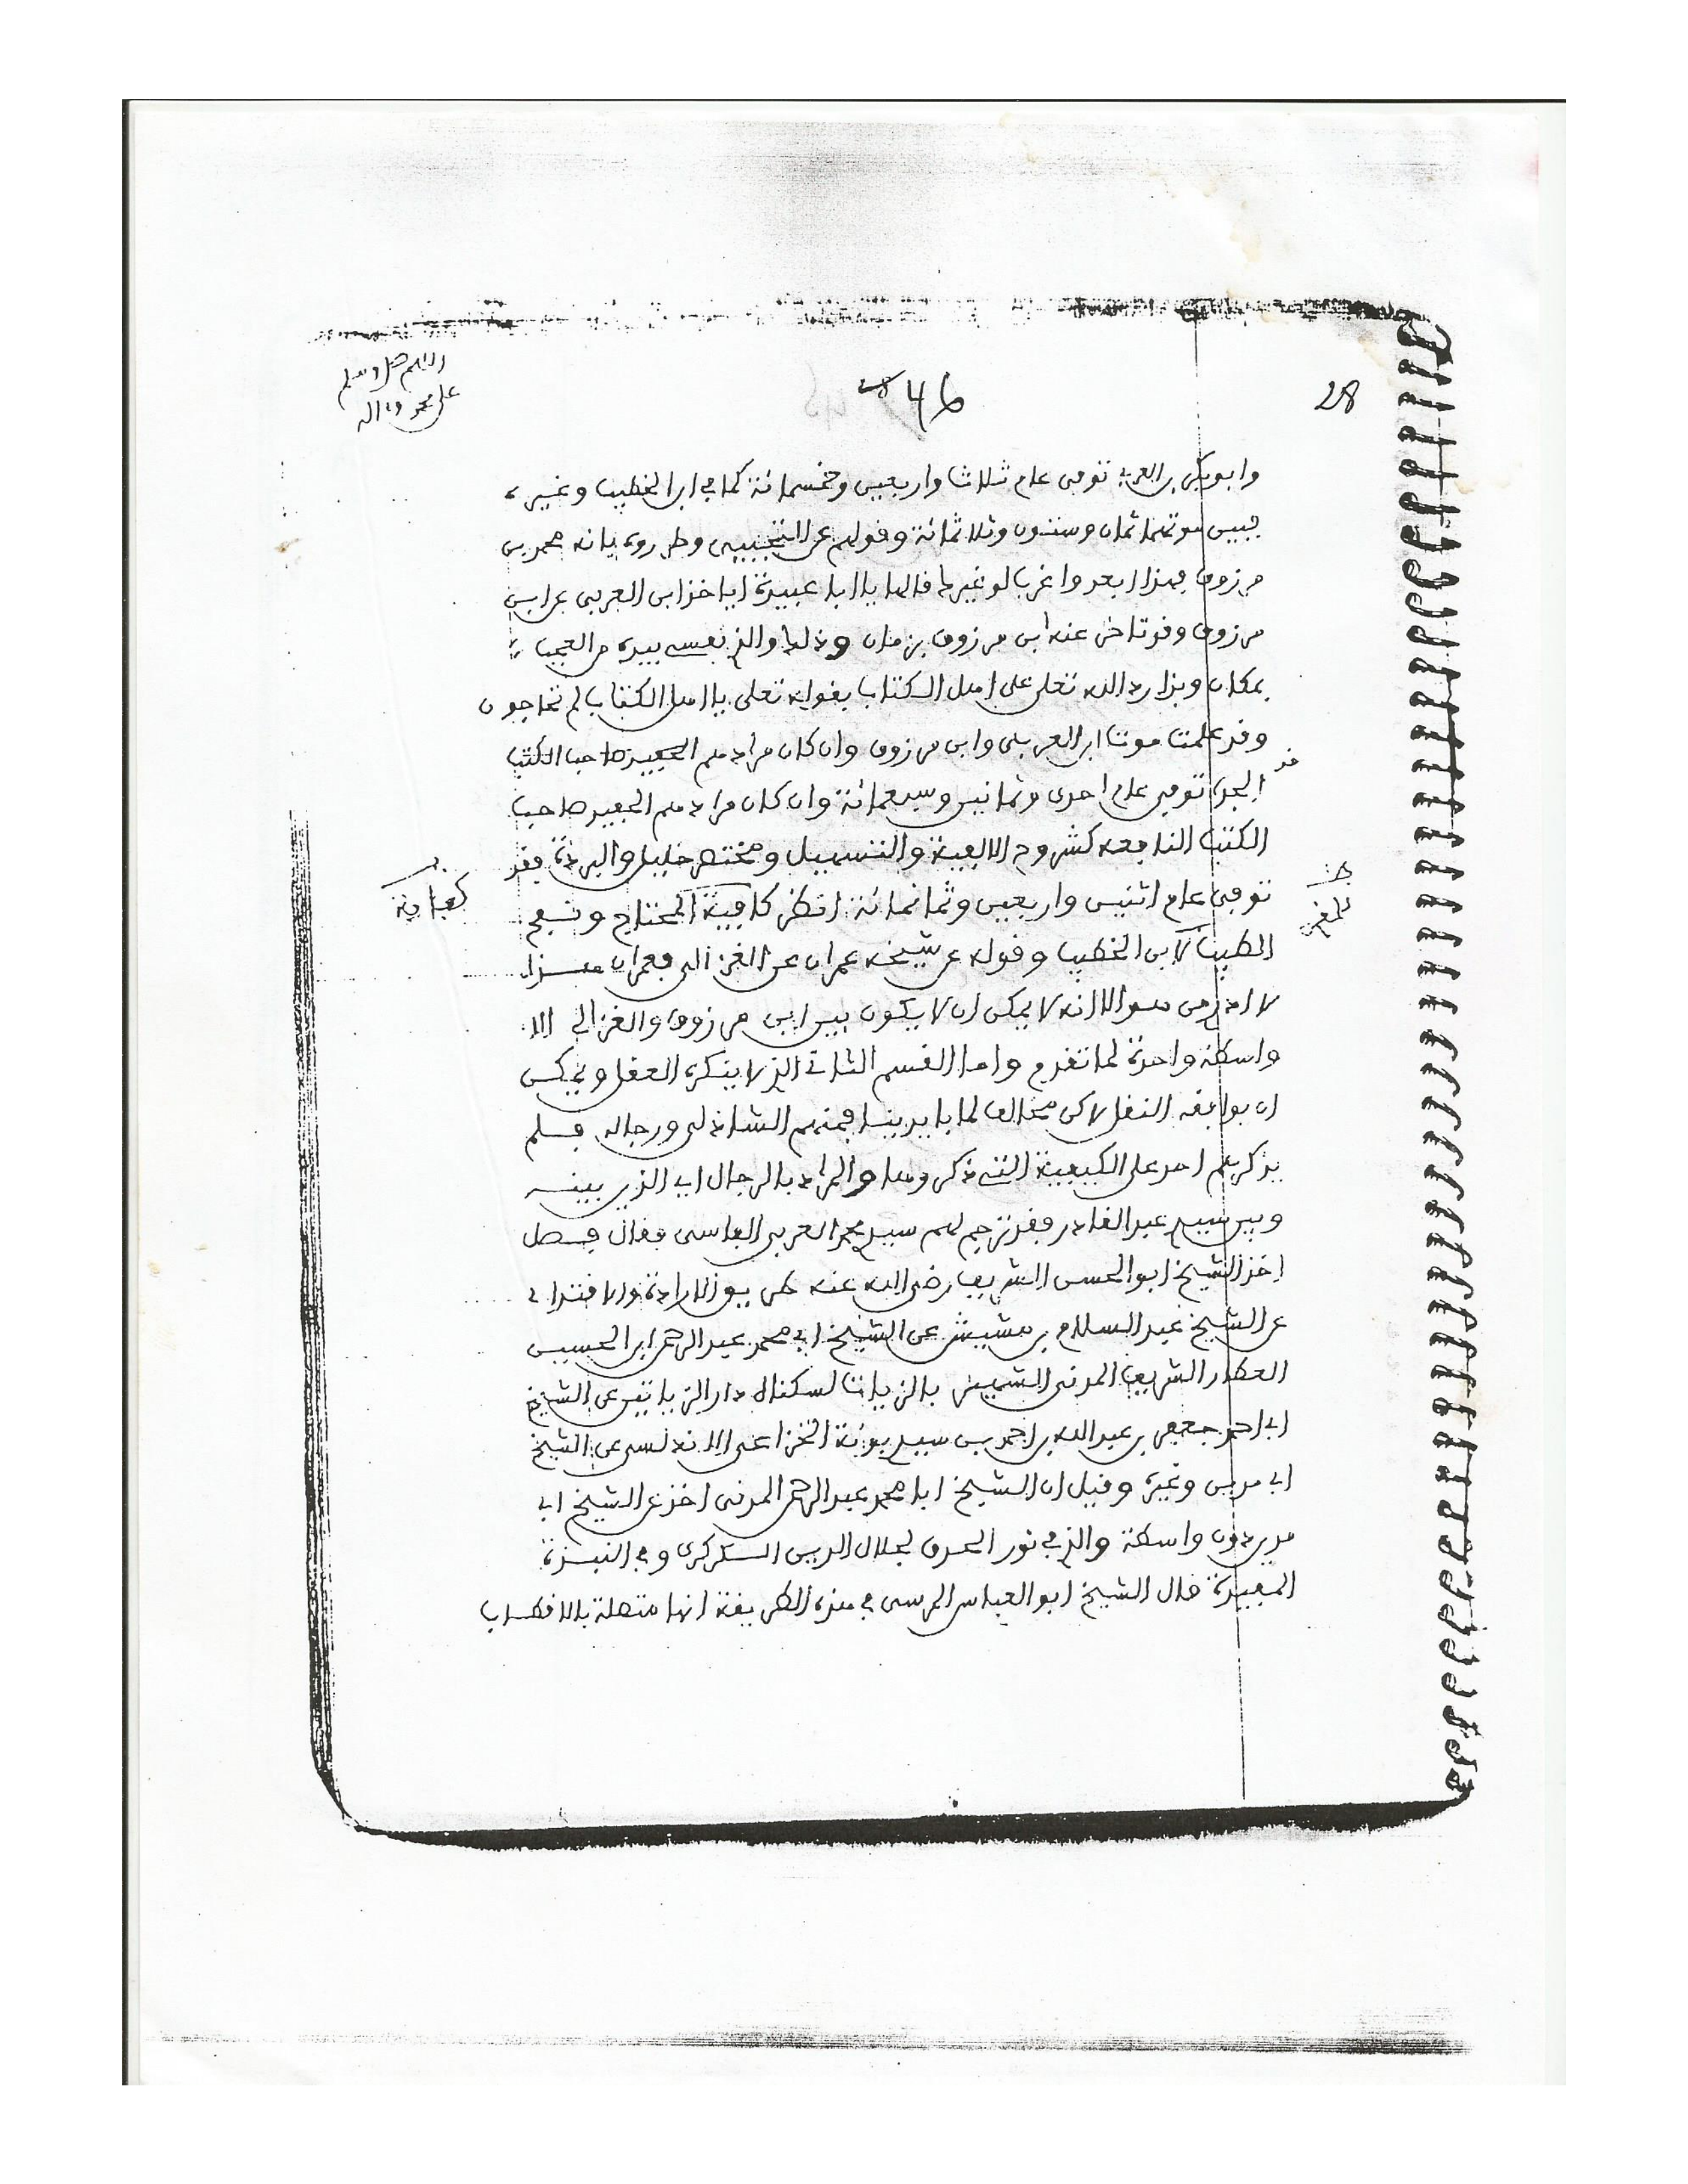 اللهم صل وسلم
على محمد وءاله
46
28
وابو بكر بن العربي توفى عام ثلاثا واربعين وخمسمائة كما في ابن الخطيب وغيره
فبين موتهما ثمان وستون وثلاثمائة وقولهم عن
مرزوق فهذا ابعد واغرب لو غيرها قالها يا ابا عبيدة اياخذ ابن العربي عن ابن
مرزوق وقد تاخر عنه ابن مرزوق بزمان وذلك والذي نفسي بيده من العجب
بمكان وبذا رد الله تعلى على اهل الكتاب بقوله تعلى يا اهل الكتاب لم تحاجون
وقد علمت موت ابن العربي وابن مرزوق وان كان مرادهم الحفيد صاحب الكتب
الجد توفى عام احدى وثمانين وسبعمائة وان كان مرادهم الحفيد صاحب
الكتب النافعة كشروح الالفية والتسهيل ومختصر خليل والبردة فقد
توفى عام اثنين واربعين وثمانمائة انظر كافية المحتاج ونفح
كفاية
للمقري
الطيب لابن الخطيب وقوله عن شيخه عمران عن الغزالي فعمران هذا
لا ادري من هو الا انه لا يمكن ان لا يكون بين ابن مرزوق والغزالي الا
واسطة واحدة لما تقدم واما القسم الثاني الذي لا ينكره العقل ويمكن
ان يوافقه النقل لاكن مخالف لما بايدينا فمنهم الشاذلي ورجاله فلم
يذكرهم احد على الكيفية التي ذكروها والمراد بالرجال اي الذين بينه
وبين سيدي عبد القادر فقد ترجم لهم سيدي محمد العربي الفاسي فقال فصل
اخذ الشيخ ابو الحسن الشريف رضي الله عنه طريق الارادة والاقتداء
عن الشيخ عبد السلام بن مشيش عن الشيخ ابي محمد عبد الرحمن ابن الحسين
العطار الشريف المدني الشهير بالزيات لسكناه دار الزياتين عن الشيخ
ابي احمد جعفر بن عبد الله بن احمد بن سيد بونة الخزاعي الاندلسي عن الشيخ
ابي مدين وغيره وقيل ان الشيخ ابا محمد عبد الرحمن المدني اخذ عن الشيخ ابي
مدين دون واسطة والذي في نور الحدق لجلال الدين الكركري وفي النبذة
المفيدة قال الشيخ ابو العباس المرسي في هذه الطريقة انها متصلة بالاقطاب